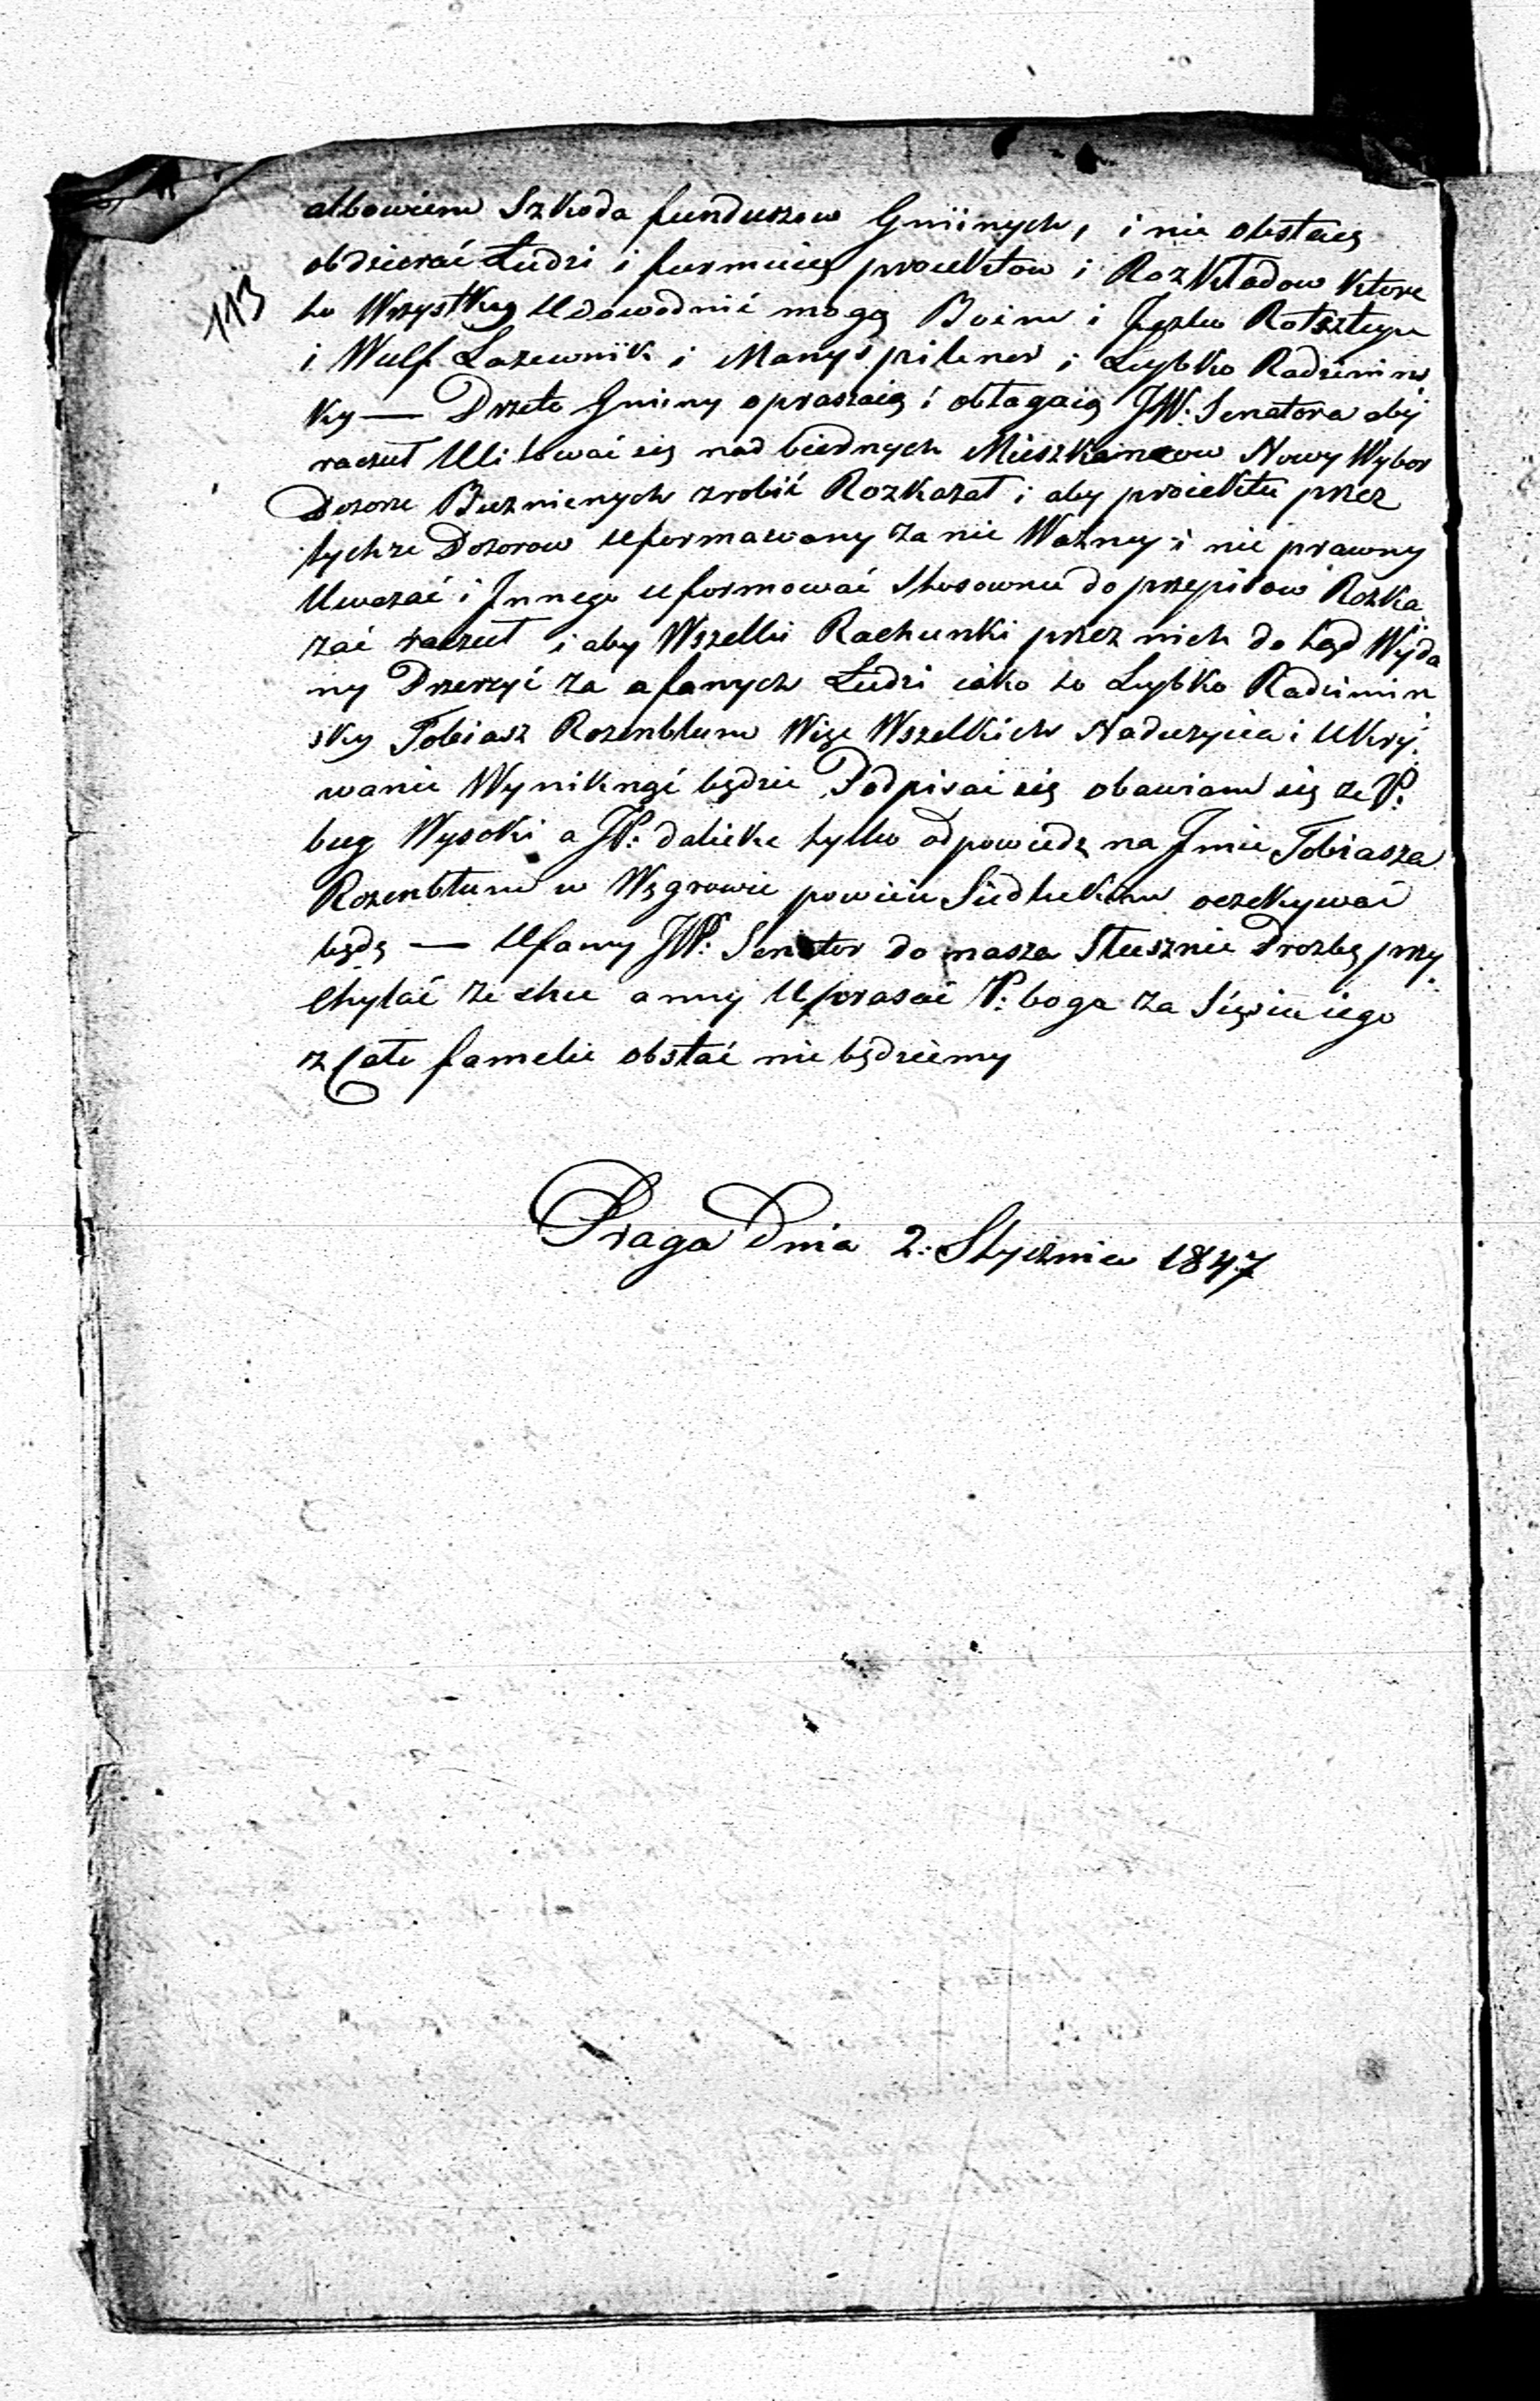 113
albowiem Szkoda funduszow Gminych, i nie obstaią
obdzierać Ludzi i furmuią proiektow i Rozkładow ktore
to Wszystkę Udowodnić mogą Boim i Jczko Rotszteyn
i Wulf Lazewnik i Manys pilner i Leybko Radzimins
ky — Przeto Gminy opraszaią i obłagaią JW: Senatora aby
raczuł Ulitować się nad biednych Mieszkancow Nowy Wybor
Dozore Buznienych zrobić Rozkazał i aby proiektu przez
tychże Dozorow Uformawany za nie Wazney i nie prawny
Uwazać i Innego uformować Stosownie do przepisow Rozka
zać raczuł i aby Wszelki Rachunki przez nich do tąd Wyda
ny Przerzyć za afanych Ludzi iako to Leybko Radzimin
sky Tobiasz Rozenblum Wize Wszelkich Naduzycia i Ukry
wanie Wyniknąć będzie Podpisai się obawiam się ze P:
bug Wysoki a JP: daleke tylko odpowiedz na Jmie Tobiasza
Rozenblum w Węgrowie powieie Siedleckim oczekywać
będę — Ufamy JW: Senator do nasza Słusznie Prozbę przy
Chylać ze chce a my Uprasać P: boga za
z Cało famelie obstać nie będziemy
Praga Dnia 2: Stycznia 1847